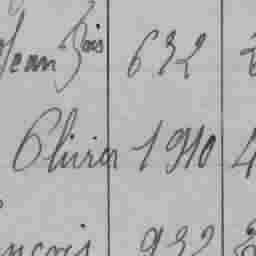 Jean Fois 632
Olivier 1910 4
ançois 932